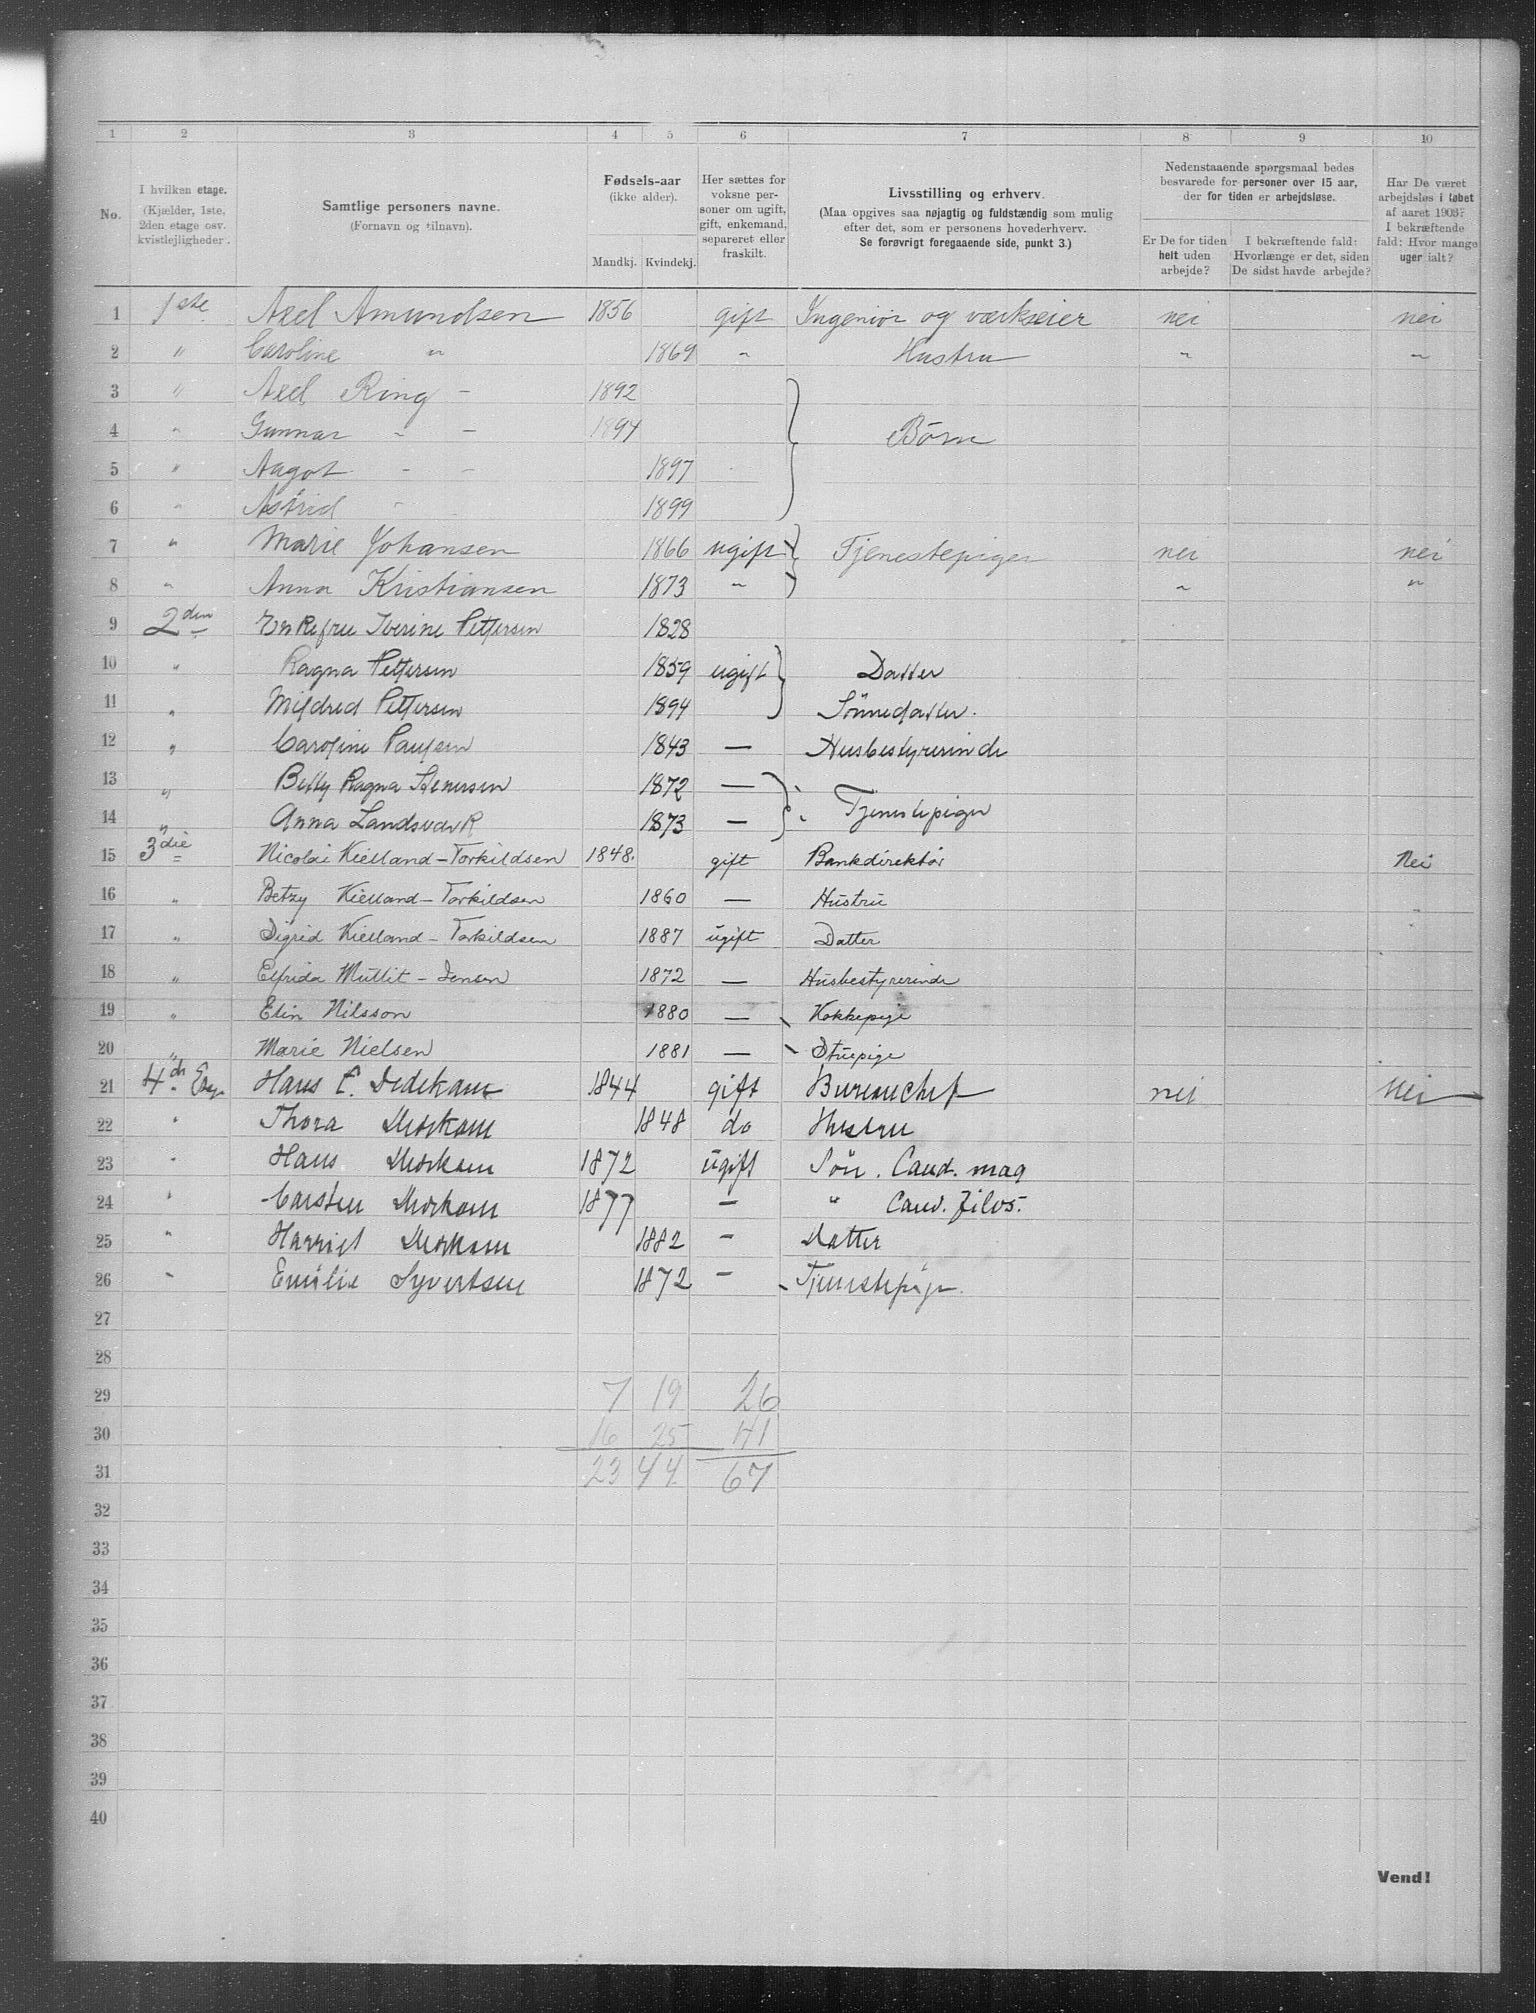 1 2 3 4 5 6 7 8 9 10
No.
I hvilken etage.
(Kjælder, 1ste,
2den etage osv.
kvistlejligheder.
Samtlige personers navne.
(Fornavn og tilnavn).
Fødsels-aar
(ikke alder).
Mandkj. Kvindekj.
Her sættes for
voksne per-
soner om ugift,
gift, enkemand,
separeret eller
fraskilt.
Livsstilling og erhverv.
(Maa opgives saa nøjagtig og fuldstændig som mulig
efter det, som er personens hovederhverv.
Se forøvrigt foregaaende side, punkt 3.)
Nedenstaaende spørgsmaal bedes
besvarede for personer over 15 aar,
der for tiden er arbejdsløse.
Er De for tiden
helt uden
arbejde?
I bekræftende fald:
Hvorlænge er det, siden
De sidst havde arbejde?
Har De været
arbejdsløs i løbet
af aaret 1903?
I bekræftende
fald: Hvor mange
uger ialt?
1 1ste Axel Amundsen 1856 gift Ingeniør og værkseier nei nei
2 " Caroline " 1869 " Hustru " "
3 " Axel Ring - 1892
4 " Gunnar - - 1894 Børn
5 " Aagot - - 1897
6 " Astrid - 1899
7 " Marie Johansen 1866 ugift Tjenestepiger nei nei
8 " Anna Kristiansen 1873 " " "
9 2den Enkefru Iverine Pettersen 1828
10 " Ragna Pettersen 1859 ugift Datter
11 " Mildred Pettersen 1894 Sönnedatter.
12 " Caroline Paulsen 1843 — Husbestyrerinde
13 " Betty Ragna Stenersen 1872 — Tjenestepiger
14 " Anna Landsverk 1873 —
15 3die Nicolai Kielland-Torkildsen 1848. gift Bankdirektör Nei
16 " Betzy Kielland-Torkildsen 1860 — Hustru
17 " Sigrid Kielland-Torkildsen 1887 ugift Datter
18 " Elfrida - Jensen 1872 — Husbestyrerinde
19 " Elin Nilsson 1880 — Kokkepige
20 " Marie Nielsen 1881 — Stuepige
21 4de Etg Hans C. Dedekam 1844 gift Bureauchef nei Nei
22 " Thora Dedekam 1848 do Hustru
23 " Hans Dedekam 1872 ugift Sön. Cand. mag
24 " Carsten Dedekam 1877 — " Cand. filos.
25 " Harriet Dedekam 1882 — Datter
26 " Emilie Syvertsen 1872 — Tjenestepige.
27
28
29 7 19 26
30 16 25 41
31 23 44 67
32
33
34
35
36
37
38
39
40
Vend!